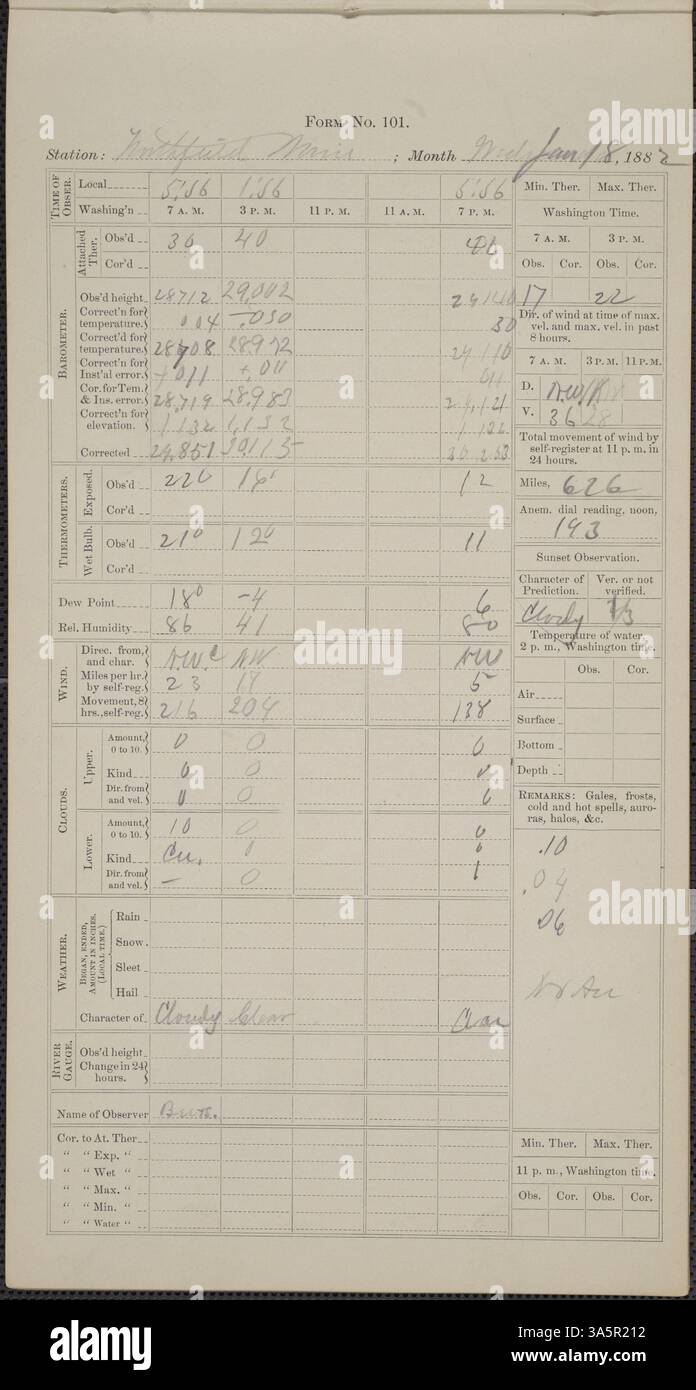 FORM No. 101.
Station: Northfield Minn ; Month Wed Jan 18, 1882
TIME OF OBSER.
Local 5:56 1:56 5:56
Washing'n 7 A. M. 3 P. M. 11 P. M. 11 A. M. 7 P. M.
BAROMETER.
Attached Ther.
Obs'd 36 40
Cor'd
Obs'd height 28712 29,002
Correct'n for temperature. 004 -.030 30
Correct'd for temperature. 28708 28.972 29 110
Correct'n for Inst'al error. +011 +.011 011
Cor. for Tem. & Ins. error 28,719 28.983 29,121
Correct'n for elevation. 1132 1,132 1 132
Corrected 29,851 30115 30 253
THERMOMETERS.
Exposed.
Obs'd 220 16° 12
Cor'd
Wet Bulb.
Obs'd 21° 12° 11
Cor'd
Dew Point 18° -4 6
Rel. Humidity 86 41 80
WIND.
Direc. from, and char. N.W. NW NW
Miles per hr. by self-reg. 23 17 5
Movement, 8 hrs., self-reg. 216 204 138
CLOUDS.
Upper.
Amount, 0 to 10. 0 0 0
Kind 0 0 0
Dir. from and vel. 0 0 0
Lower.
Amount, 0 to 10. 10 0 0
Kind Cu. 0 0
Dir. from and vel. — 0 1
WEATHER.
BEGAN, ENDED, AMOUNT IN INCHES. (LOCAL TIME.)
Rain
Snow
Sleet
Hail
Character of Cloudy Clear Clear
RIVER GAUGE.
Obs'd height
Change in 24 hours.
Name of Observer
Cor. to At. Ther
" " Exp. "
" " Wet "
" " Max. "
" " Min. "
" " Water "
Min. Ther. Max. Ther.
Washington Time.
7 A. M. 3 P. M.
Obs. Cor. Obs. Cor.
17 22
Dir. of wind at time of max. vel. and max. vel. in past 8 hours.
7 A. M. 3 P.M. 11 P.M.
D. N.W. NW
V. 36 28
Total movement of wind by self-register at 11 p. m. in 24 hours.
Miles, 626
Anem. dial reading, noon,
193
Sunset Observation.
Character of Prediction. Ver. or not verified.
Cloudy
Temperature of water, 2 p. m., Washington time.
Obs. Cor.
Air
Surface
Bottom
Depth
REMARKS: Gales, frosts, cold and hot spells, auroras, halos, &c.
.10
.04
06
No Au
Min. Ther. Max. Ther.
11 p. m., Washington time.
Obs. Cor. Obs. Cor.
alamy
Image ID: 3A5R212
www.alamy.com